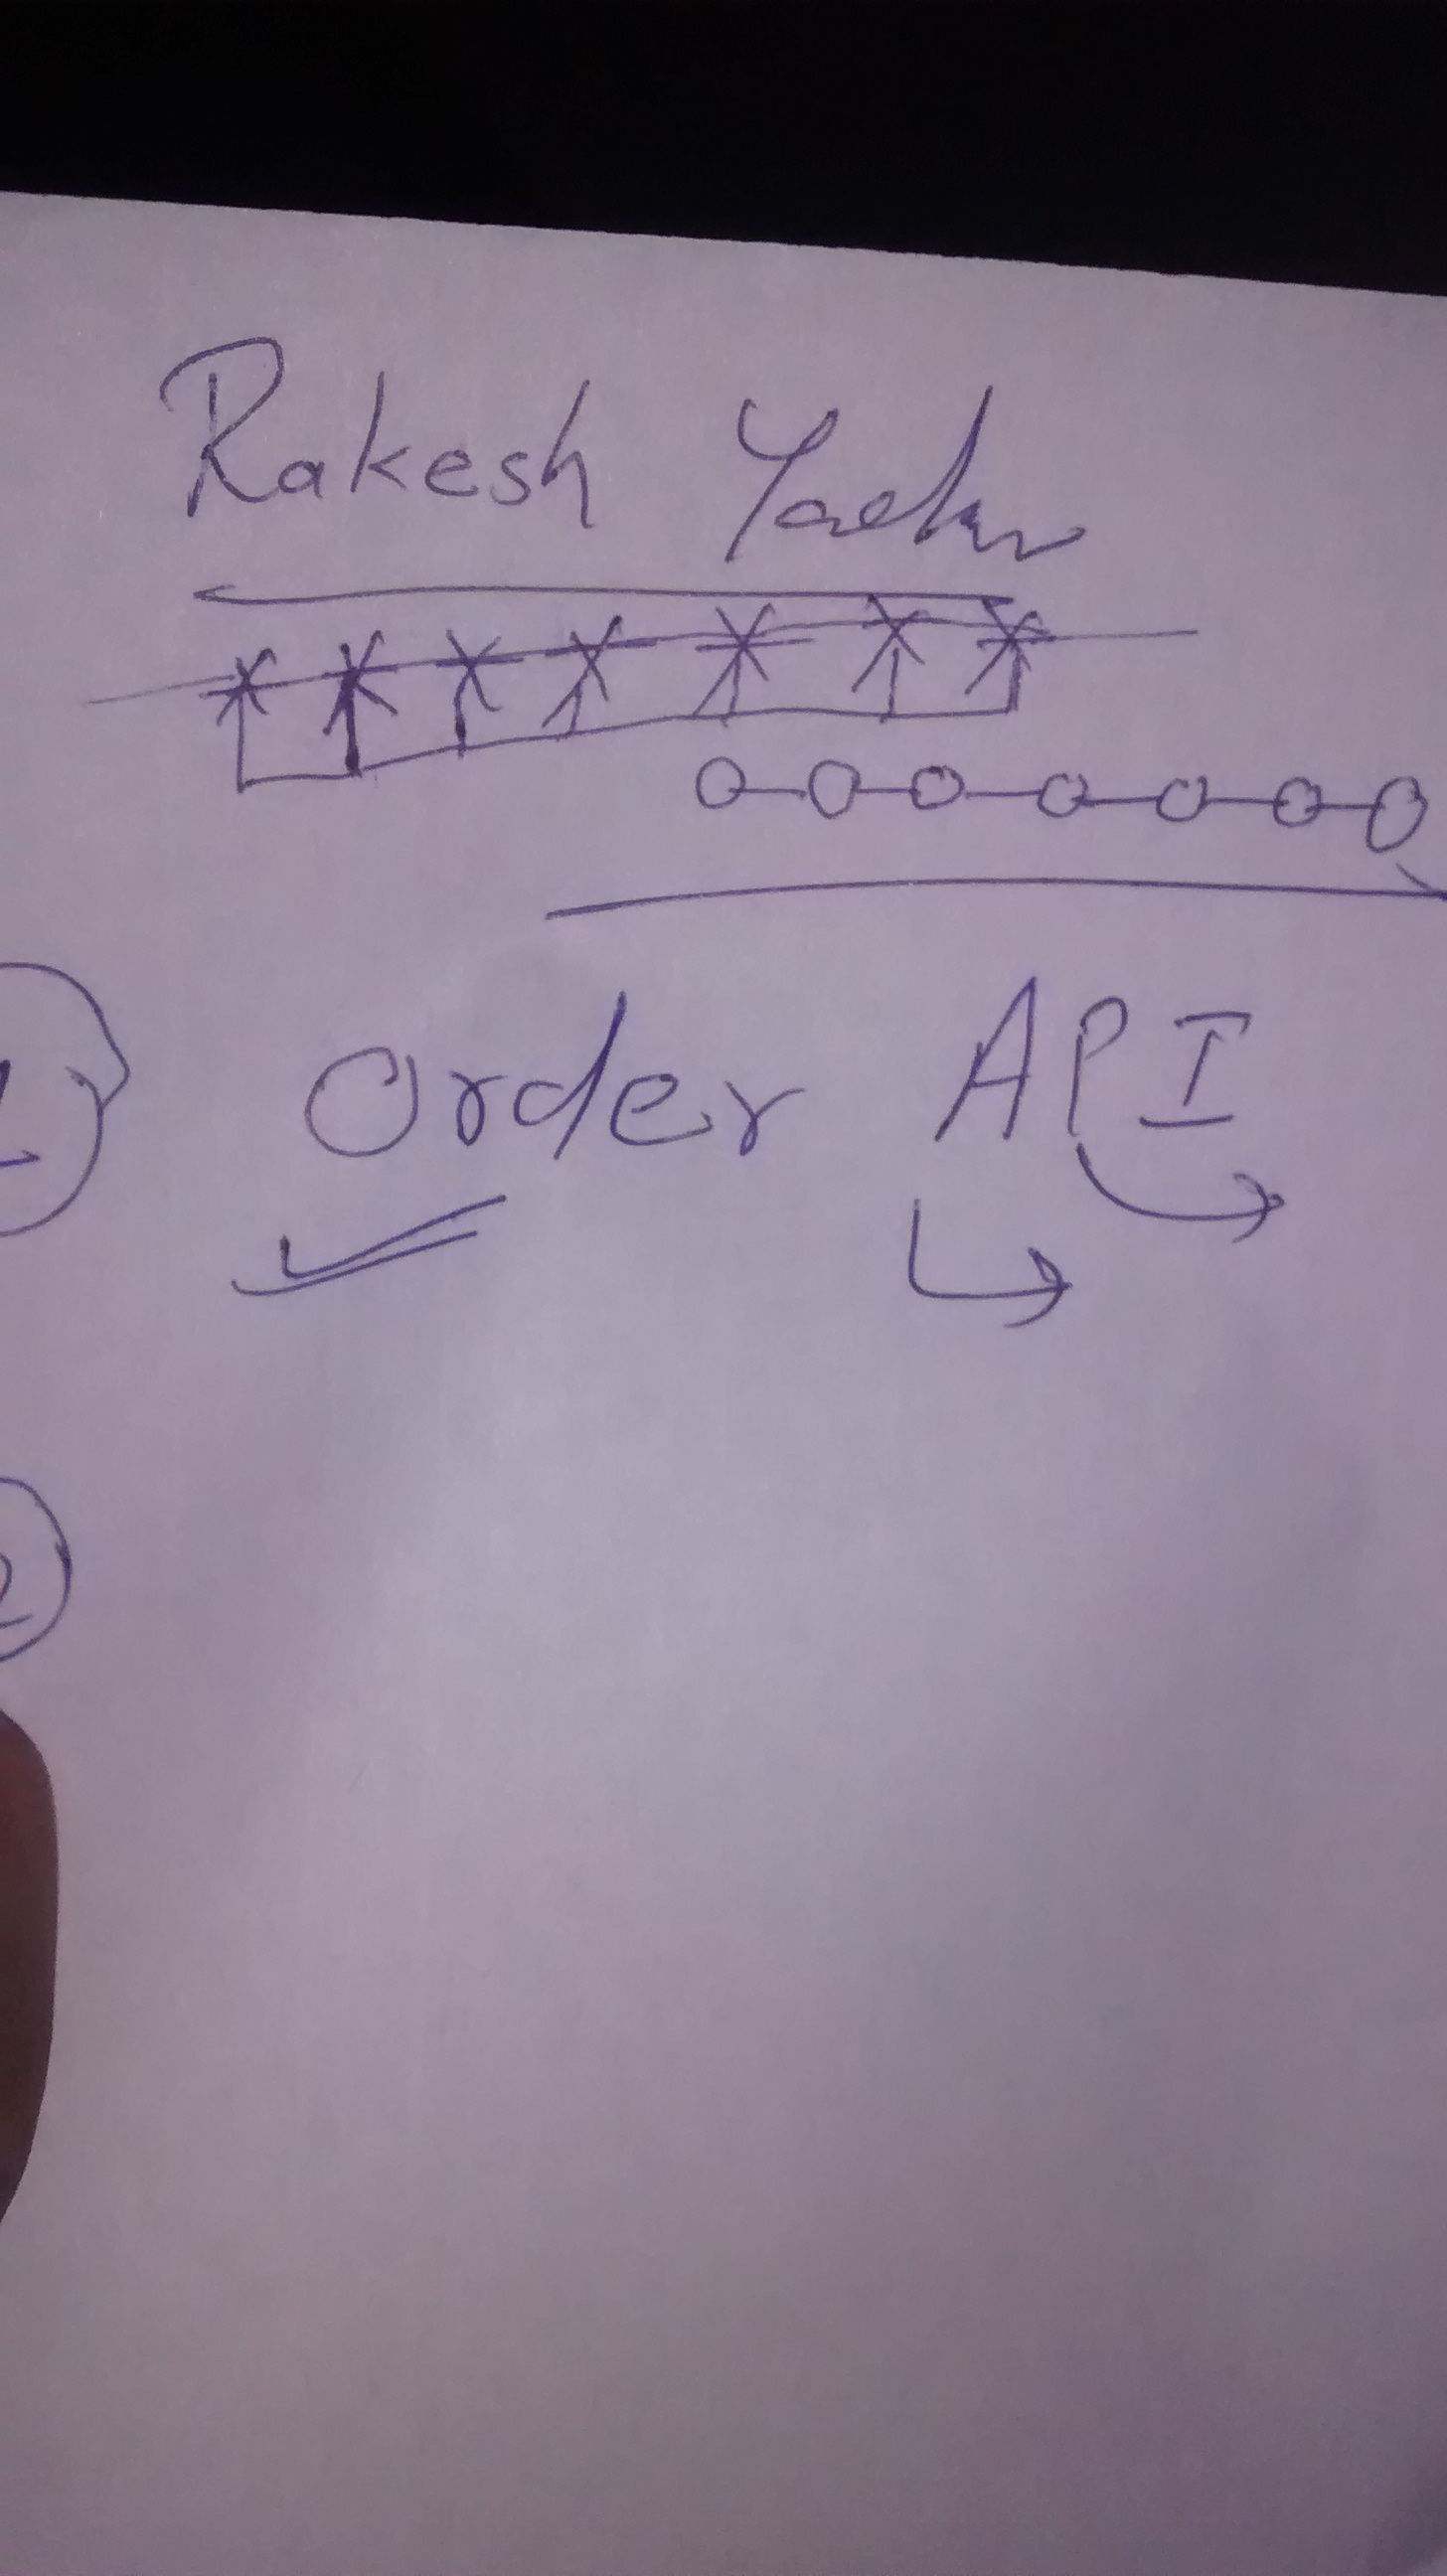 Rakesh Yadav
1 Order API
2